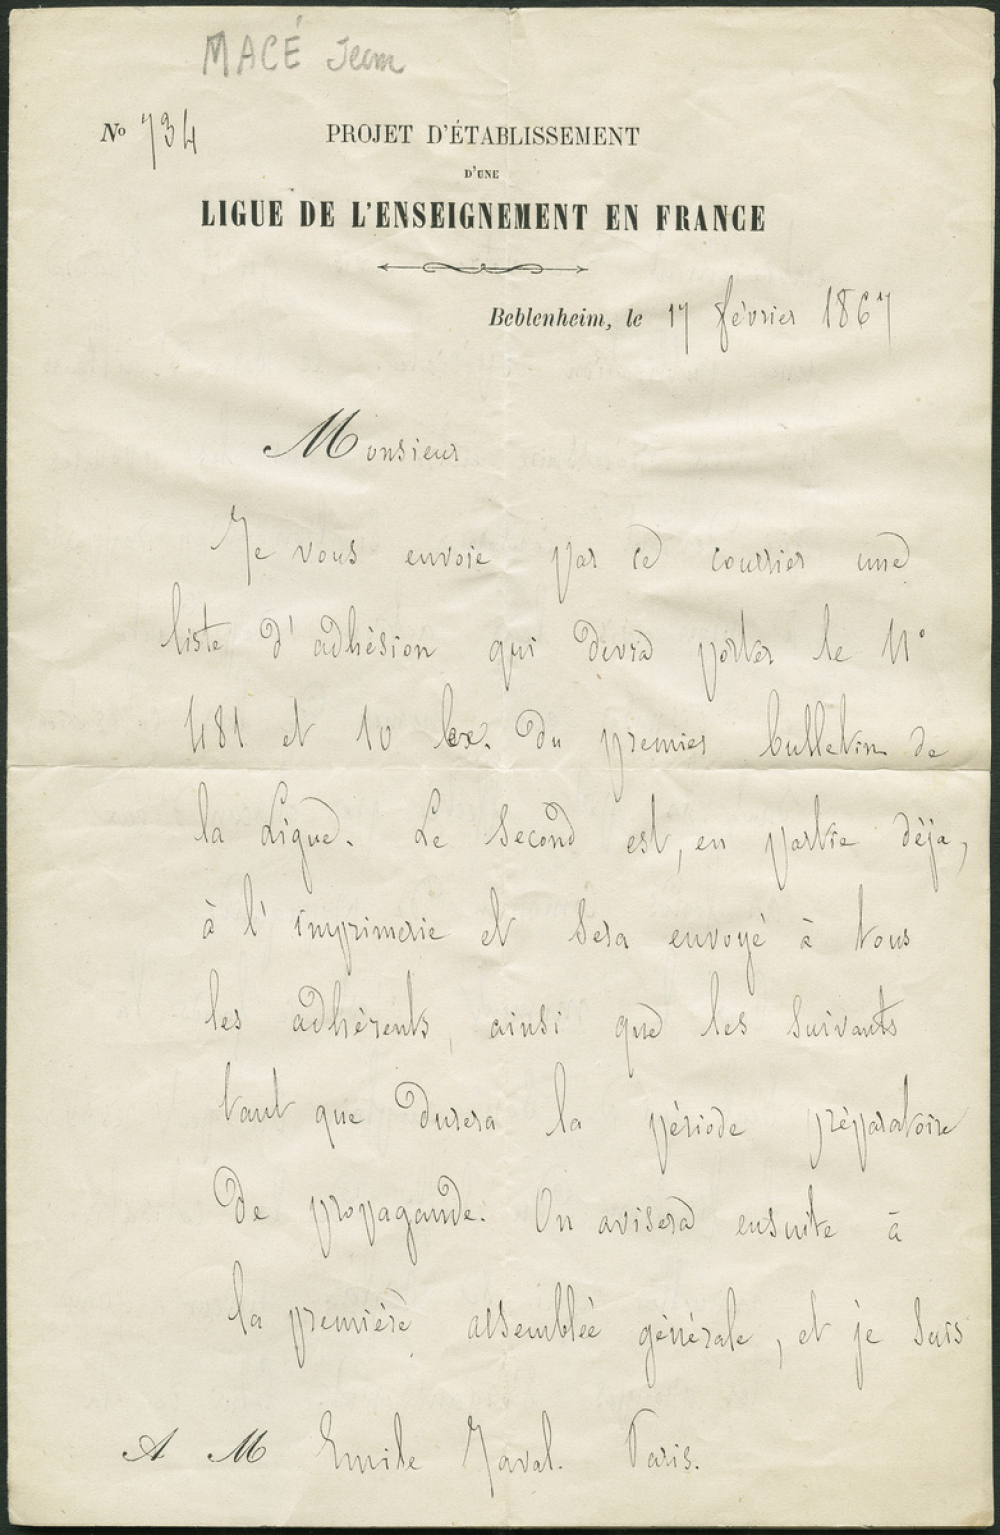 MACÉ Jean
No 734
PROJET D'ÉTABLISSEMENT
D'UNE
LIGUE DE L'ENSEIGNEMENT EN FRANCE
Beblenheim, le 17 février 1867
Monsieur
Je vous envoie par ce courrier une
liste d'adhésion qui devra porter le N°
481 et 10 ex. du premier bulletin de
la Ligue. Le second est, en partie déja,
à l'imprimerie et sera envoyé à tous
les adhérents, ainsi que les suivants
tant que durera la période préparatoire
de propagande. On avisera ensuite à
la première assemblée générale, et je suis
A M Emile Javal. Paris.